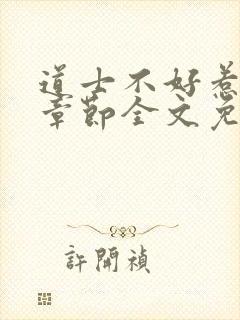 道士不好惹
章節全文免
許開禎